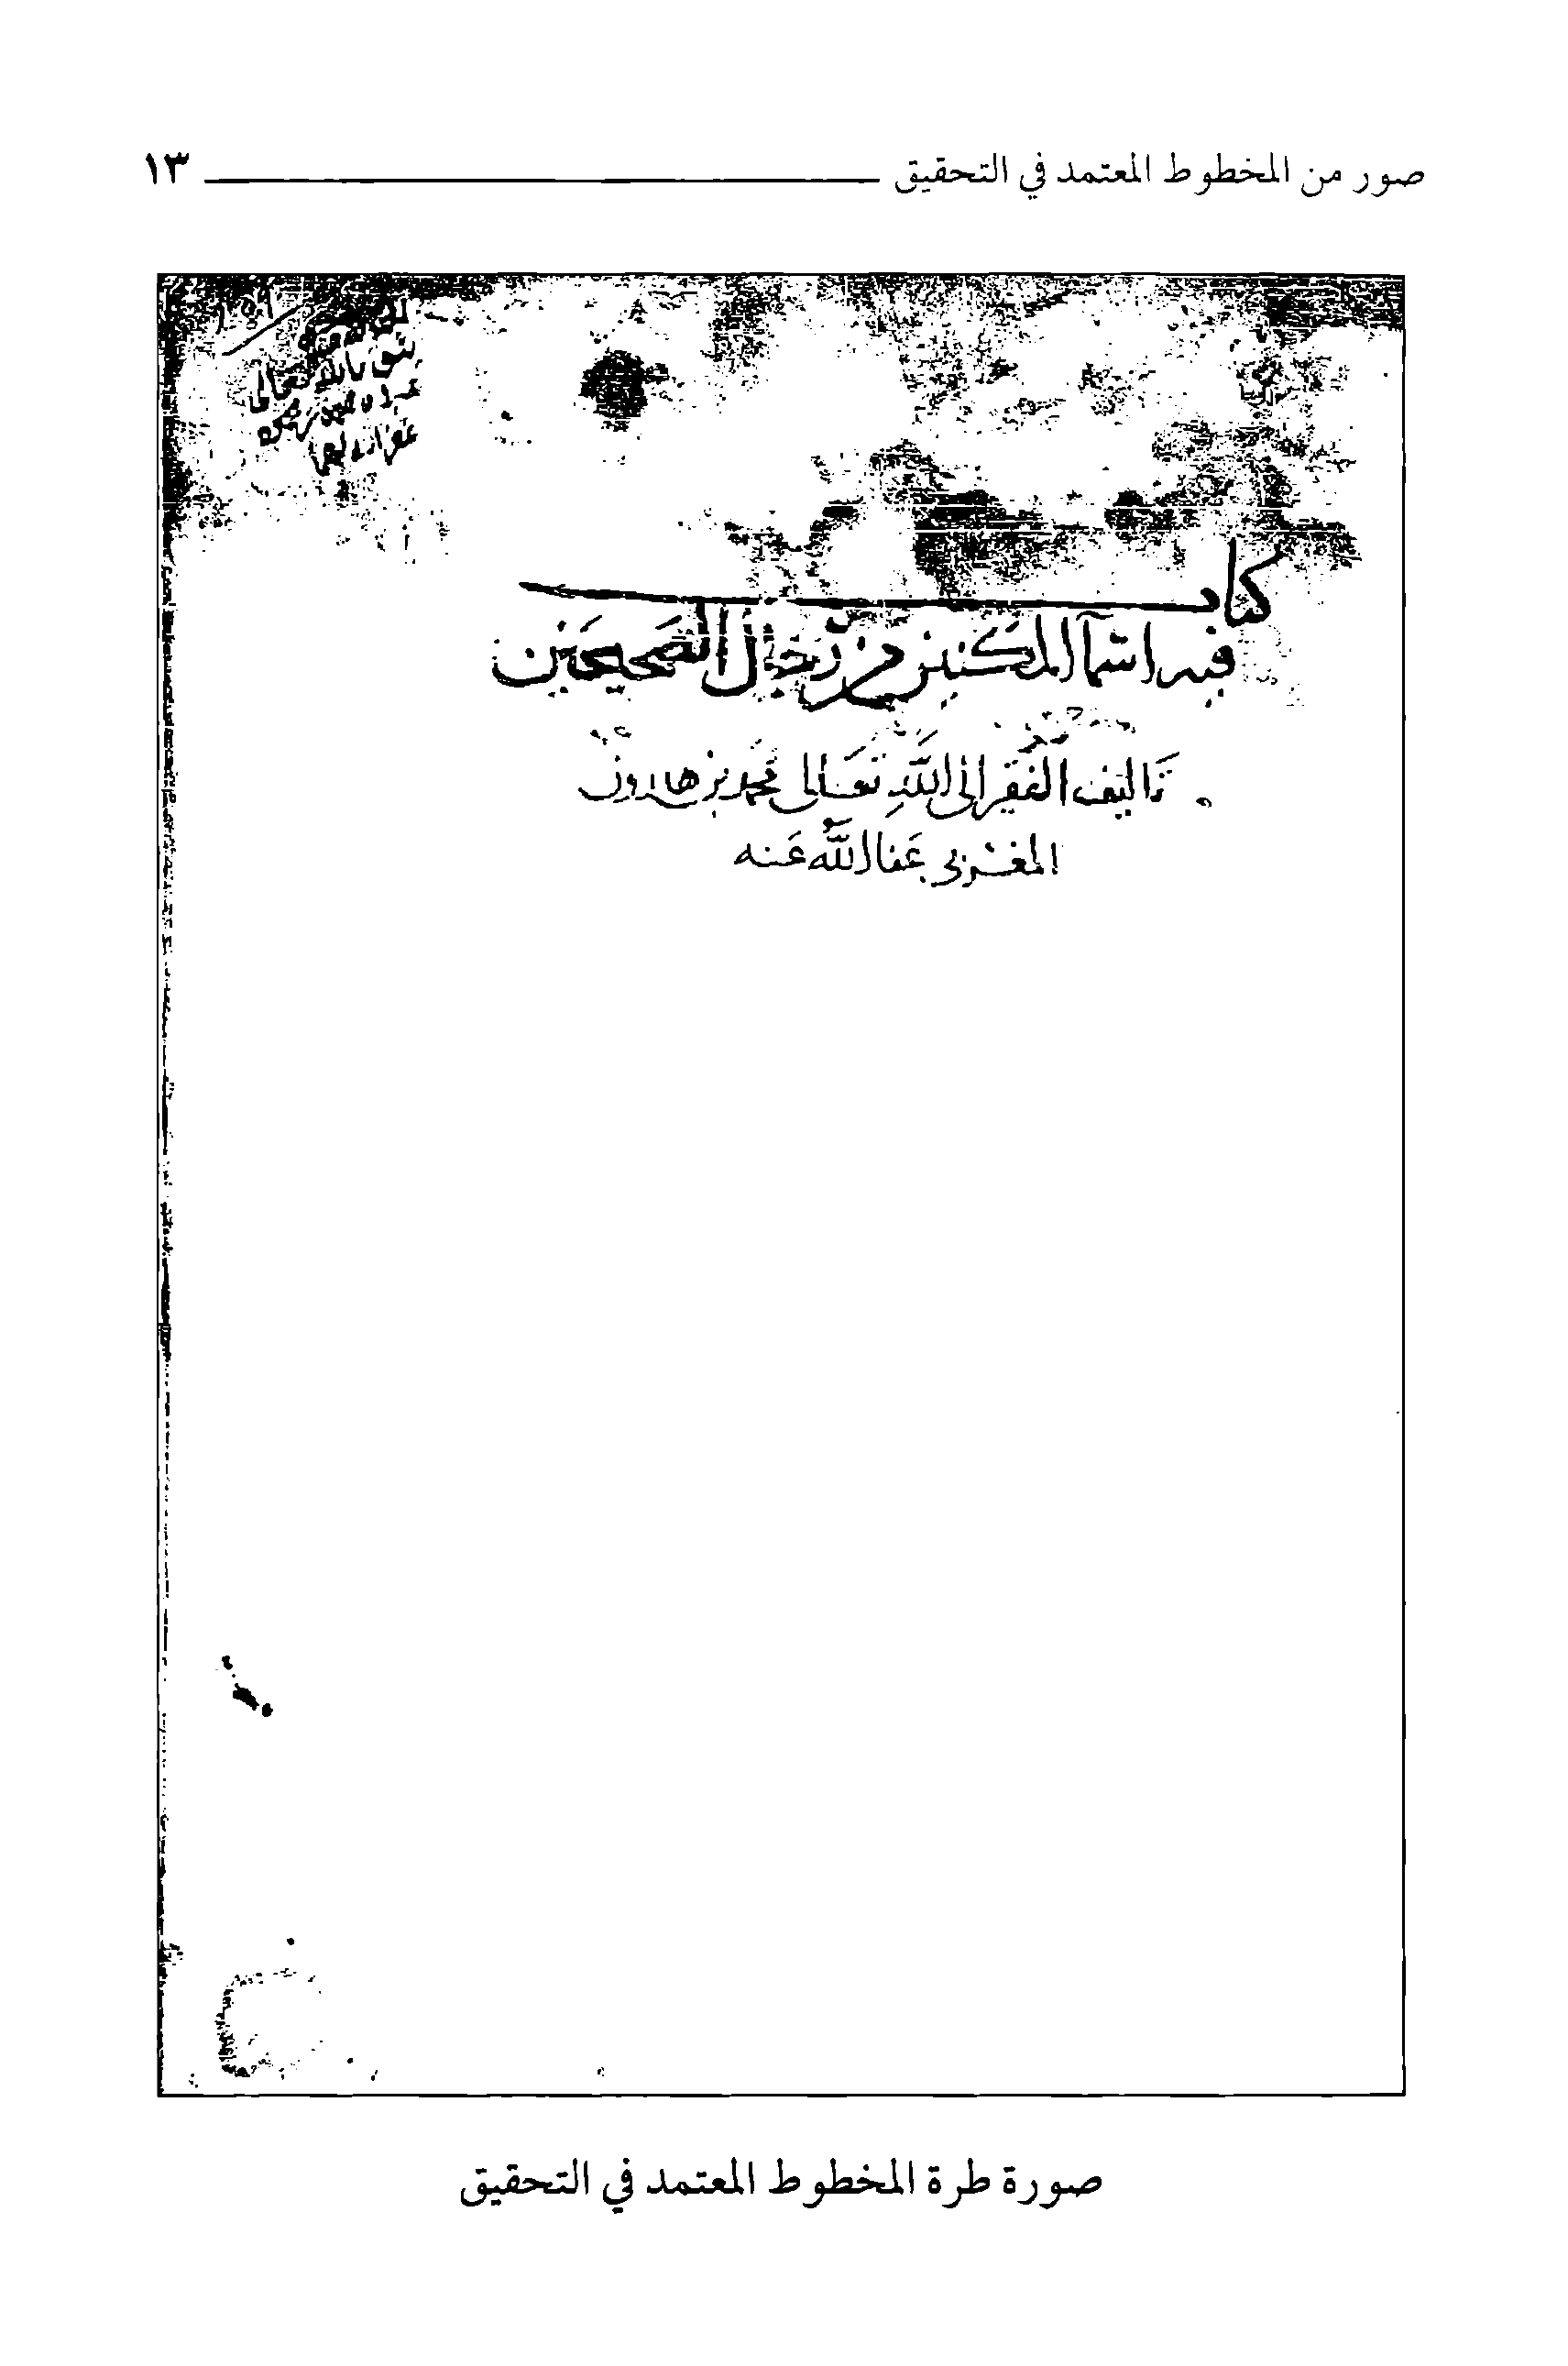 صور من المخطوط المعتمد في التحقيق ١٣
يثق بالله تعالى
كتاب
فيه اسما المكنيين من رجال الصحيحين
تاليف الفقير الى الله تعالى محمد بن هارون
المغربي عفا الله عنه
صورة طرة المخطوط المعتمد في التحقيق